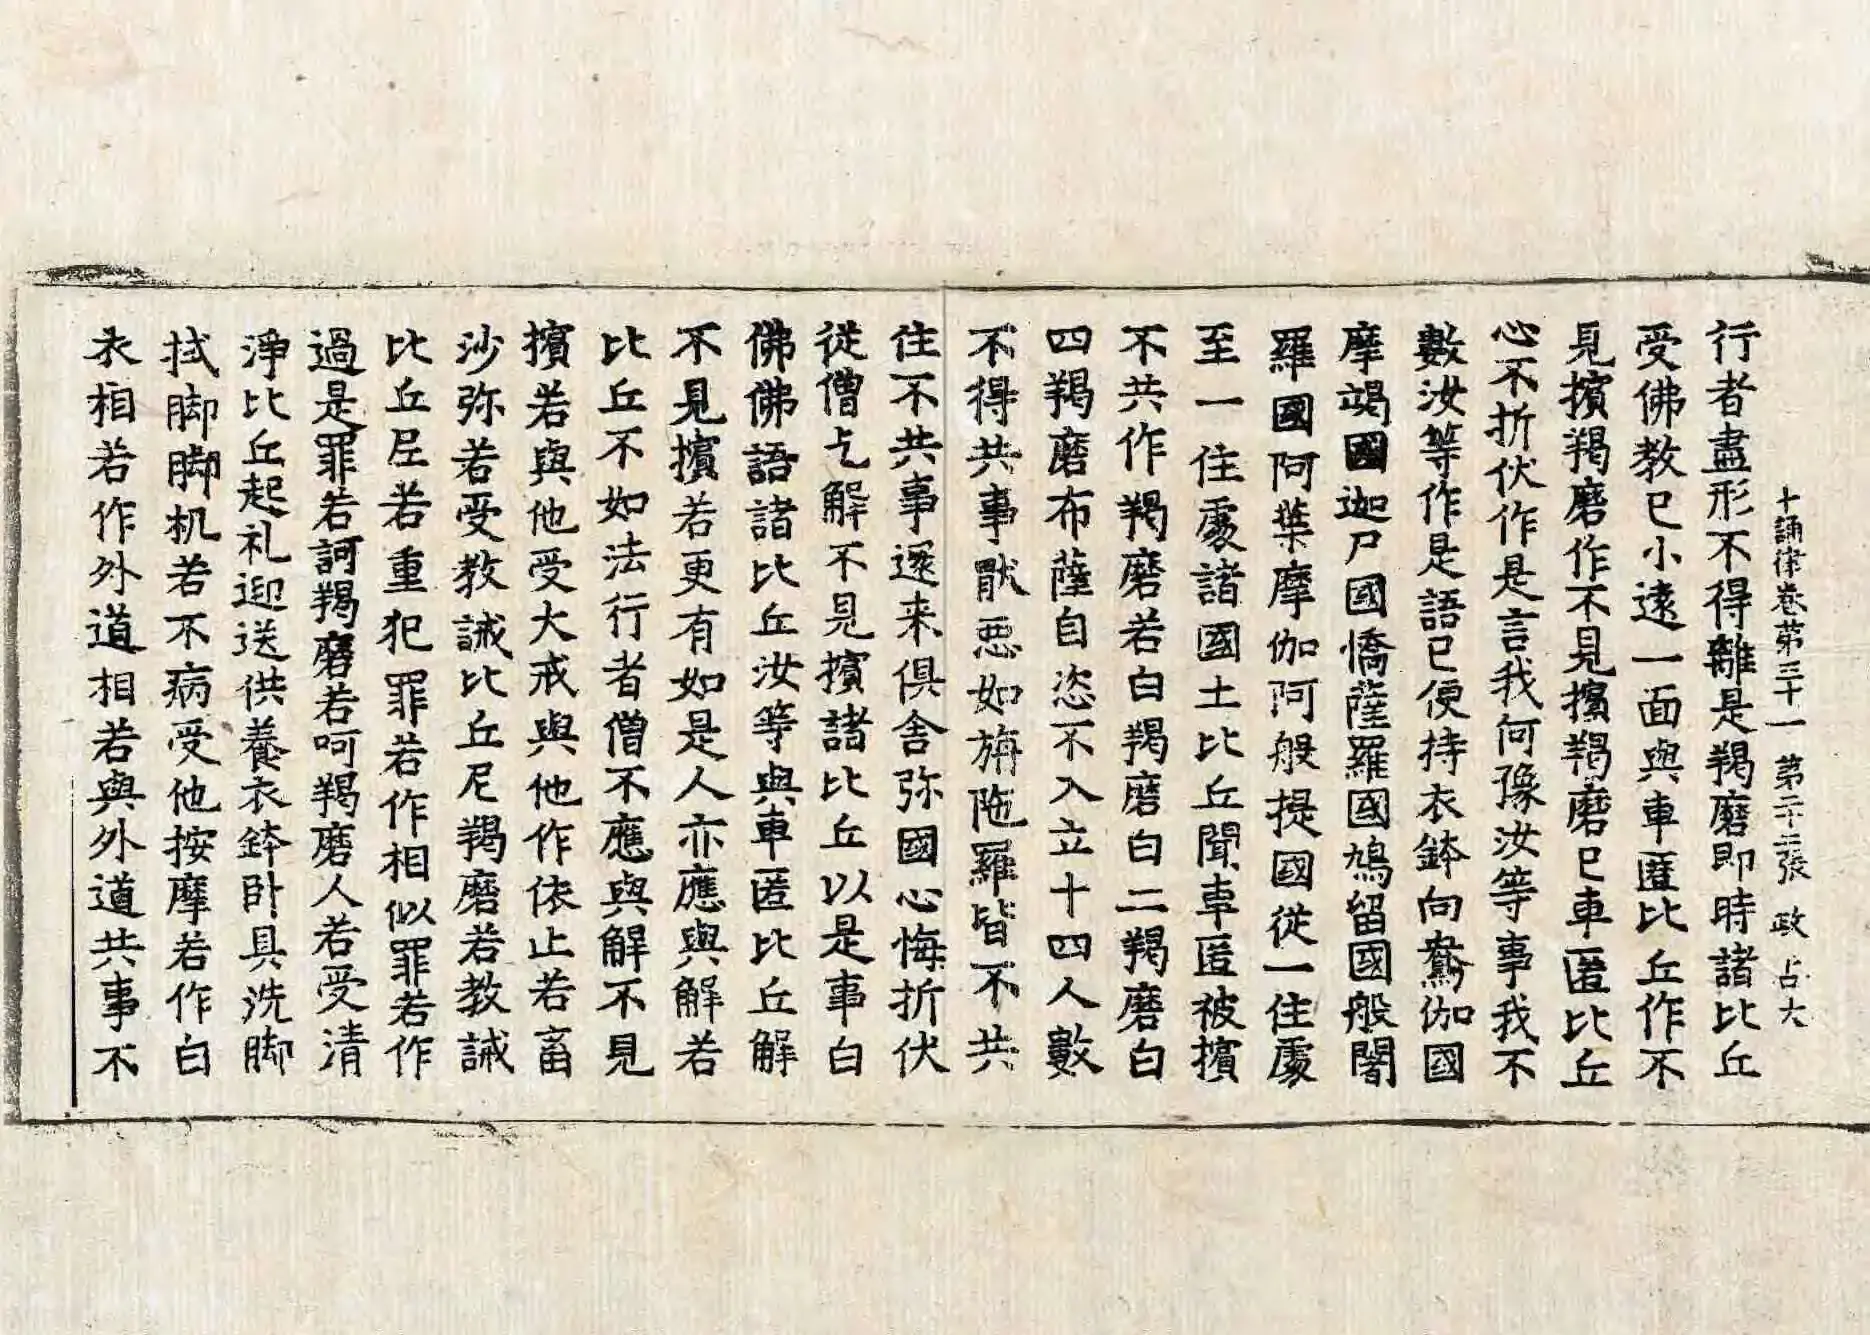 十誦律卷第三十一 第二十二張 政 占大
行者盡形不得離是羯磨即時諸比丘
受佛教已小遠一面與車匿比丘作不
見擯羯磨作不見擯羯磨已車匿比丘
心不折伏作是言我何豫汝等事我不
數汝等作是語已便持衣鉢向鴦伽國
摩竭國迦尸國憍薩羅國鳩留國般闍
羅國阿葉摩伽阿般提國從一住處
至一住處諸國土比丘聞車匿被擯
不共作羯磨若白羯磨白二羯磨白
四羯磨布薩自恣不入立十四人數
不得共事猒惡如旃陁羅皆不共
住不共事還来俱舍弥國心悔折伏
從僧乞解不見擯諸比丘以是事白
佛佛語諸比丘汝等與車匿比丘解
不見擯若更有如是人亦應與解若
比丘不如法行者僧不應與解不見
擯若與他受大戒與他作依止若畜
沙弥若受教誡比丘尼羯磨若教誡
比丘尼若重犯罪若作相似罪若作
過是罪若訶羯磨若呵羯磨人若受清
淨比丘起礼迎送供養衣鉢卧具洗脚
拭脚脚机若不病受他按摩若作白
衣相若作外道相若與外道共事不